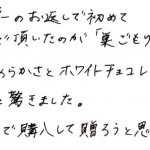 ーのお返しで初めて
で頂いたのが「巣ごもり
めらかさとホワイトチョコレ
に驚きました。
で購入して贈ろうと思